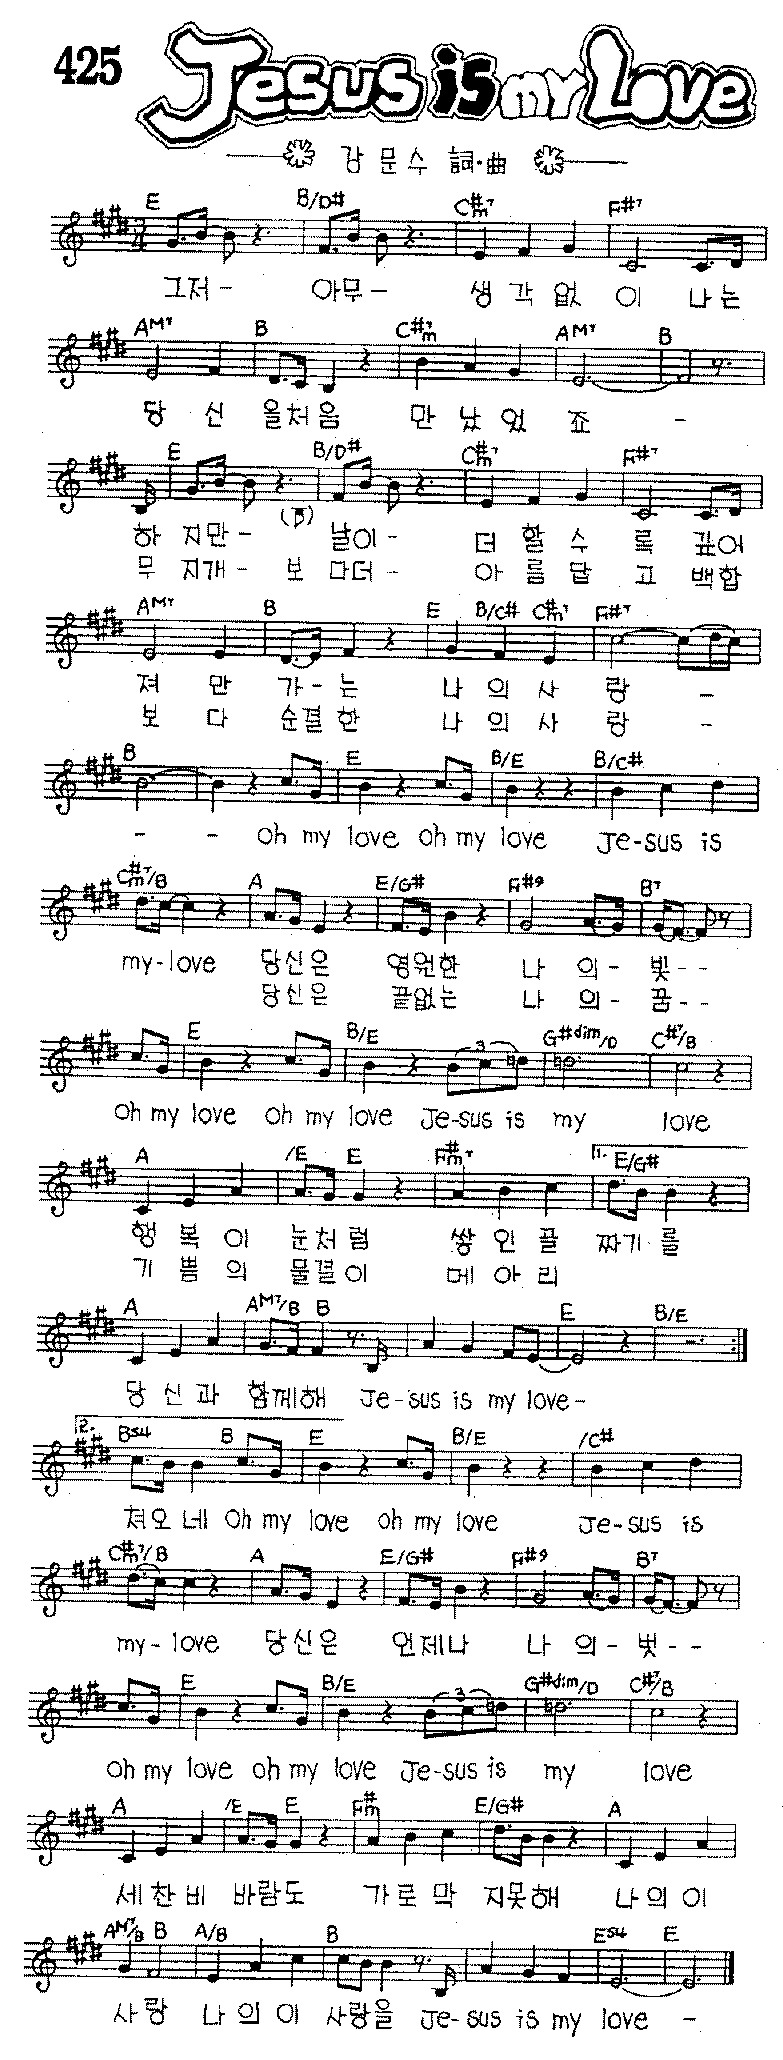 425 Jesus is my Love
강 문 수 詞·曲
E B/D# C#m7 F#7
그저- 아무- 생 각 없 이 나 는
AM7 B C#m7 AM7 B
당 신 을처음 만 났 었 죠 -
E B/D# C#m7 F#7
하 지만- 날이- 더 할 수 록 깊어
무 지개- 보 다더- 아 름 답 고 백합
AM7 B E B/C# C#m7 F#7
져 만 가-는 나 의 사 랑 -
보 다 순결한 나 의 사 랑 -
B E B/E B/C#
- - oh my love oh my love Je-sus is
C#m7/B A E/G# F#9 B7
my-love 당신은 영원한 나 의- 빛--
당신은 끝없는 나 의- 꿈--
E B/E G#dim/D C#7/B
oh my love oh my love Je-sus is my love
A /E E F#m7 1. E/G#
행 복 이 눈처럼 쌓 인 골 짜기를
기 쁨 의 물결이 메 아 리
A AM7/B B E B/E
당 신 과 함께해 Je-sus is my love-
2. Bsu4 B E B/E /C#
쳐오네 oh my love oh my love Je-sus is
C#m7/B A E/G# F#9 B7
my-love 당신은 언제나 나 의- 벗--
E B/E G#dim/D C#7/B
oh my love oh my love Je-sus is my love
A /E E F#m E/G# A
세찬비 바람도 가로막 지못해 나의이
AM7/B B A/B B Esu4 E
사랑 나의이 사랑을 Je-sus is my love -